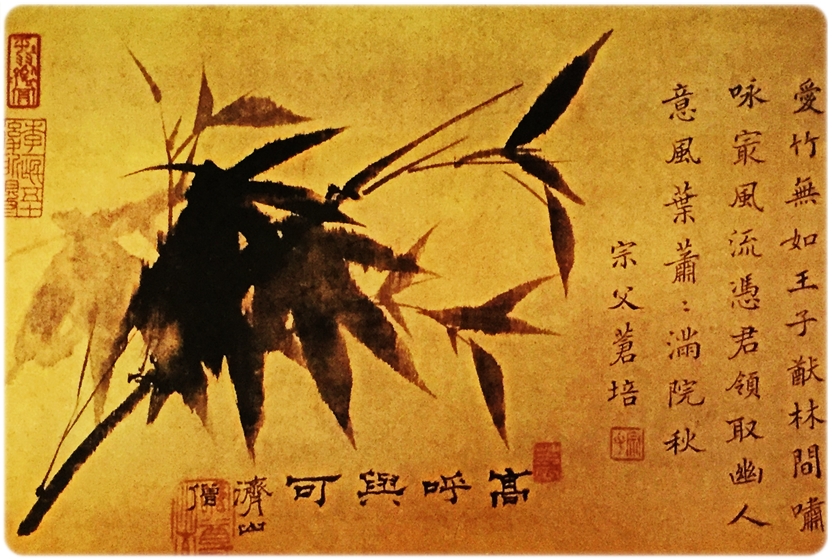 愛竹無如王子猷林間嘯
咏㝡風流憑君領取幽人
意風葉蕭〻滿院秋
宗父蒼培
高呼與可
濟山
僧